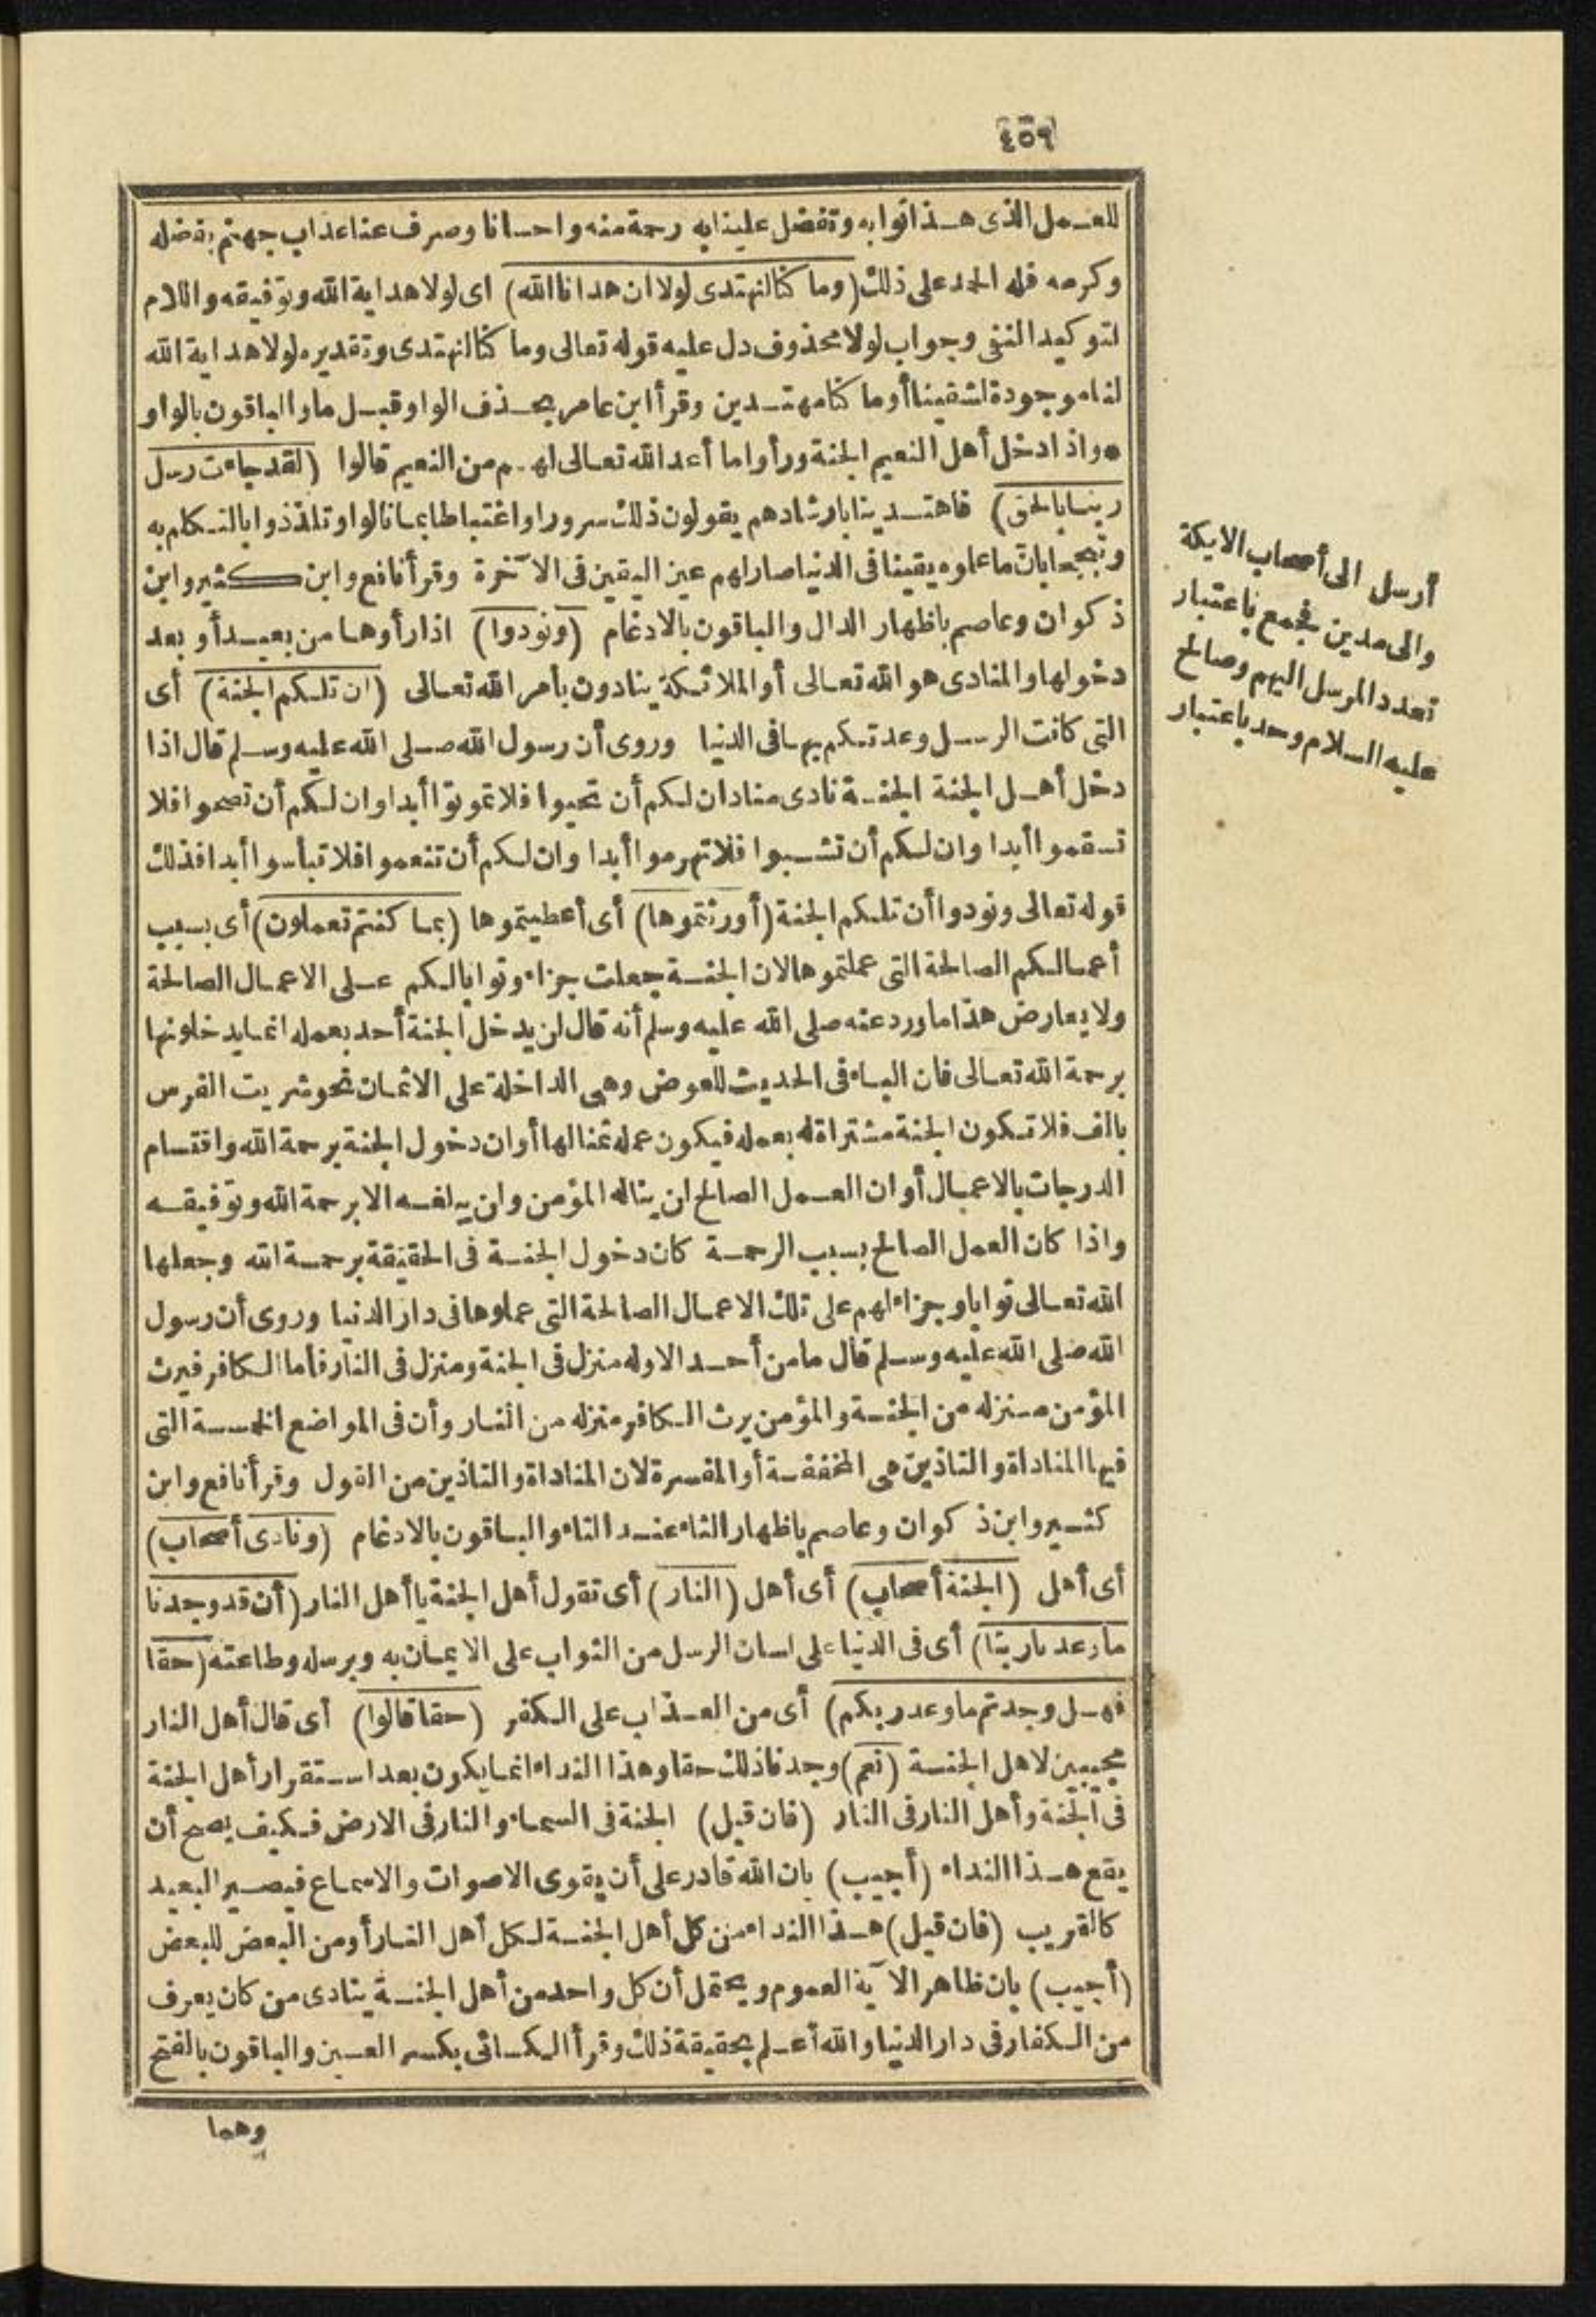 ٤٥٩
للعمل الذى هذا ثوابه وتفضل علينا به رحمة منه واحسانا وصرف عنا عذاب جهنم بفضله
وكرمه فله الحمد على ذلك (وما كنا لنهتدى لولا ان هدانا الله) اى لولا هداية الله وتوفيقه واللام
لتوكيد النفى وجواب لولا محذوف دل عليه قوله تعالى وما كنا لنهتدى وتقديره لولا هداية الله
لنا موجودة لشقينا أو ما كنا مهتدين وقرأ ابن عامر بحذف الواو قبل ما والباقون بالواو
• واذا دخل أهل النعيم الجنة ورأوا ما أعد الله تعالى لهم من النعيم قالوا (لقد جاءت رسل
ربنا بالحق) فاهتدينا بارشادهم يقولون ذلك سرورا واغتباطا بما نالوا وتلذذوا بالتكلم به
وتبجحا بان ما علموه يقينا فى الدنيا صار لهم عين اليقين فى الآخرة وقرأ نافع وابن كثير وابن
ذكوان وعاصم باظهار الدال والباقون بالادغام (ونودوا) اذا رأوها من بعيد أو بعد
دخولها والمنادى هو الله تعالى أو الملائكة ينادون بأمر الله تعالى (ان تلكم الجنة) أى
التى كانت الرسل وعدتكم بها فى الدنيا وروى أن رسول الله صلى الله عليه وسلم قال اذا
دخل أهل الجنة الجنة نادى مناد ان لكم أن تحيوا فلا تموتوا أبدا وان لكم أن تصحوا فلا
تسقموا أبدا وان لكم أن تشبوا فلا تهرموا أبدا وان لكم أن تنعموا فلا تبأسوا أبدا فذلك
قوله تعالى ونودوا أن تلكم الجنة (أورثتموها) أى أعطيتموها (بما كنتم تعملون) أى بسبب
أعمالكم الصالحة التى عملتموها لان الجنة جعلت جزاء وثوابا لكم على الاعمال الصالحة
ولا يعارض هذا ما ورد عنه صلى الله عليه وسلم أنه قال لن يدخل الجنة أحد بعمله انما يدخلونها
برحمة الله تعالى فان الباء فى الحديث للعوض وهى الداخلة على الاثمان نحو شريت الفرس
بالف فلا تكون الجنة مشتراة له بعمله فيكون عمله ثمنا لها أو ان دخول الجنة برحمة الله واقتسام
الدرجات بالاعمال أو ان العمل الصالح ان يناله المؤمن وان يبلغه الا برحمة الله وتوفيقه
واذا كان العمل الصالح بسبب الرحمة كان دخول الجنة فى الحقيقة برحمة الله وجعلها
الله تعالى ثوابا وجزاء لهم على تلك الاعمال الصالحة التى عملوها فى دار الدنيا وروى أن رسول
الله صلى الله عليه وسلم قال ما من أحد الا وله منزل فى الجنة ومنزل فى النار فأما الكافر فيرث
المؤمن منزله من الجنة والمؤمن يرث الكافر منزله من النار وأن فى المواضع الخمسة التى
فيها المناداة والتاذين هى المخففة أو المفسرة لان المناداة والتاذين من القول وقرأ نافع وابن
كثير وابن ذكوان وعاصم باظهار الثاء عند التاء والباقون بالادغام (ونادى أصحاب)
أى أهل (الجنة أصحاب) أى أهل (النار) أى تقول أهل الجنة يا أهل النار (أن قد وجدنا
ما وعدنا ربنا) أى فى الدنيا على لسان الرسل من الثواب على الايمان به وبرسله وطاعته (حقا
فهل وجدتم ما وعد ربكم) أى من العذاب على الكفر (حقا قالوا) أى قال أهل النار
مجيبين لاهل الجنة (نعم) وجدنا ذلك حقا وهذا النداء انما يكون بعد استقرار أهل الجنة
فى الجنة وأهل النار فى النار (فان قيل) الجنة فى السماء والنار فى الارض فكيف يصح أن
يقع هذا النداء (أجيب) بان الله قادر على أن يقوى الاصوات والاسماع فيصير البعيد
كالقريب (فان قيل) هذا النداء من كل أهل الجنة لكل أهل النار أو من البعض للبعض
(أجيب) بان ظاهر الآية العموم ويحتمل أن كل واحد من أهل الجنة ينادى من كان يعرف
من الكفار فى دار الدنيا والله أعلم بحقيقة ذلك وقرأ الكسائى بكسر العين والباقون بالفتح
وهما
أرسل الى أصحاب الايكة
والى مدين فجمع باعتبار
تعدد المرسل اليهم وصالح
عليه السلام وحد باعتبار